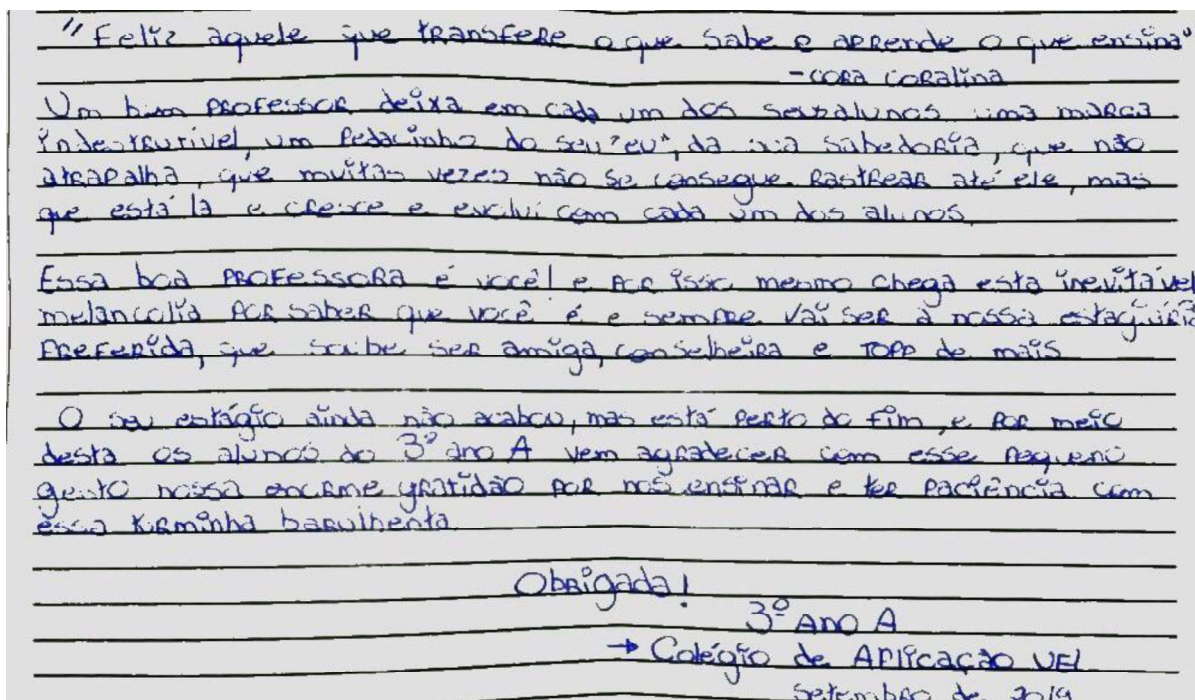 "Feliz aquele que transfere o que sabe e aprende o que ensina"
- Cora Coralina
Um bom professor deixa em cada um dos seus alunos uma marca
indestrutível, um pedacinho do seu "eu", da sua sabedoria, que não
atrapalha, que muitas vezes não se consegue rastrear até ele, mas
que está lá e cresce e evolui com cada um dos alunos.
Essa boa professora é você! e por isso mesmo chega esta inevitável
melancolia por saber que você é e sempre vai ser a nossa estagiária
preferida, que soube ser amiga, conselheira e topp de mais
O seu estágio ainda não acabou, mas está perto do fim, e por meio
desta os alunos do 3º ano A vem agradecer com esse pequeno
gesto nossa enorme gratidão por nos ensinar e ter paciência com
essa turminha barulhenta.
Obrigada!
3º ANO A
→ Colégio de Aplicação UEL
Setembro de 2019